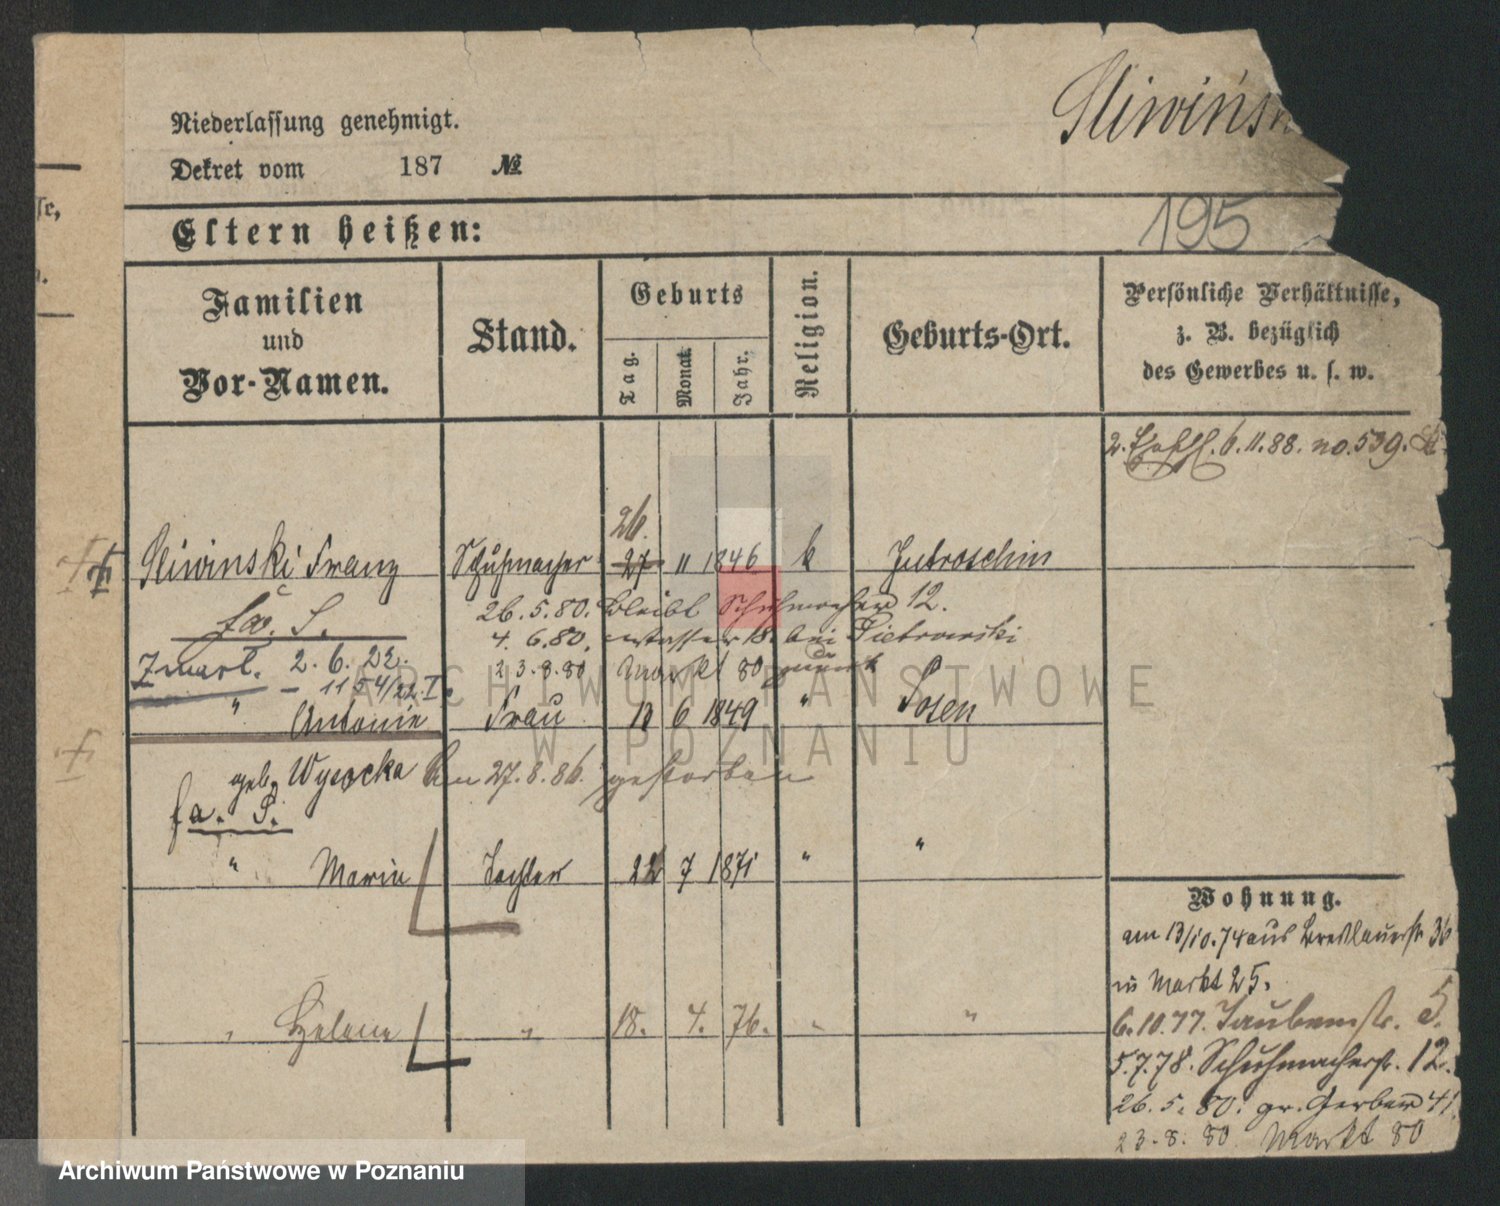 Śliwińs
Niederlassung genehmigt.
Dekret vom 187 №
195
Eltern heißen:
Familien und Vor-Namen.
Stand.
Geburts
Tag.
Monat.
Jahr.
Religion.
Geburts-Ort.
Persönliche Verhältnisse,
z. B. bezüglich
des Gewerbes u. s. w.
2. 6.11.88. no. 539.
26.
Sliwinski Franz Schuhmacher 27 11 1846 k Jutroschin
fa. S. 26.5.80. bleibt Schuhmacher 12.
4. 6.80. 18. bei Pietrowski
Zmarł. 2. 6. 22. 23.8.80 Markt 80
- 1154/22. I
" Antonie Frau 11 6 1849 " Posen
geb. Wysocka Am 27.8.86. gestorben
fa. S.
" Marie Tochter 22 7 1871 " "
" Helene " 18. 4. 76. " "
Wohnung.
am 13/10.74 aus Breslauerstr 36
in Markt 25.
6.10.77. Taubenstr. 5.
5.7.78. Schuhmacherstr. 12.
26. 5. 80. gr. Gerber 41
23. 8. 80 Markt 80
se,
ARCHIWUM PAŃSTWOWE
W POZNANIU
Archiwum Państwowe w Poznaniu